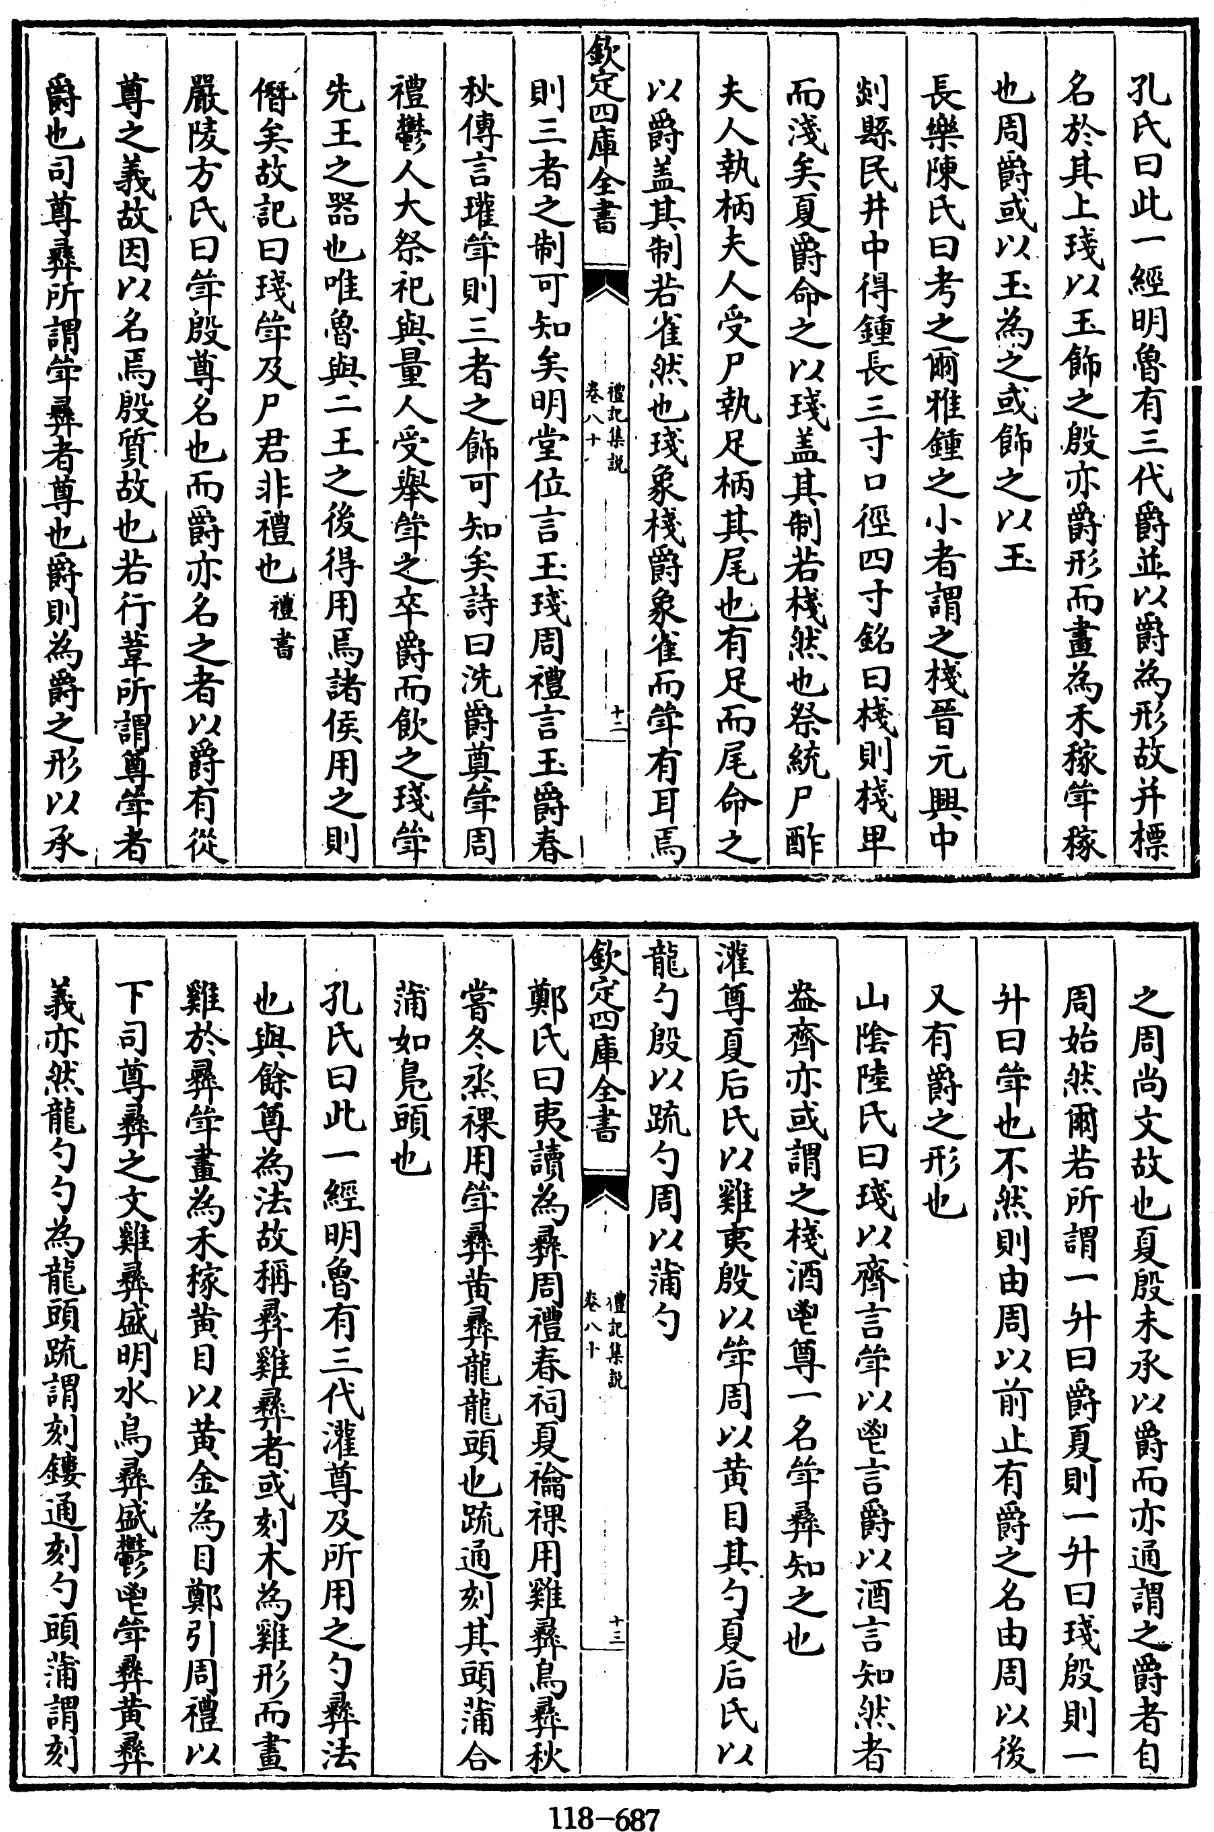 孔氏曰此一經明魯有三代爵並以爵為形故并標
名於其上琖以玉飾之殷亦爵形而畫為禾稼斝稼
也周爵或以玉為之或飾之以玉
長樂陳氏曰考之爾雅鍾之小者謂之棧晉元興中
剡縣民井中得鍾長三寸口徑四寸銘曰棧則棧卑
而淺矣夏爵命之以琖蓋其制若棧然也祭統尸酢
夫人執柄夫人受尸執足柄其尾也有足而尾命之
以爵盖其制若雀然也琖象棧爵象雀而斝有耳焉
欽定四庫全書
禮記集說
卷八十
十二
則三者之制可知矣明堂位言玉琖周禮言玉爵春
秋傳言瓘斝則三者之飾可知矣詩曰洗爵奠斝周
禮鬱人大祭祀與量人受舉斝之卒爵而飲之琖斝
先王之器也唯魯與二王之後得用焉諸侯用之則
僭矣故記曰琖斝及尸君非禮也禮書
嚴陵方氏曰斝殷尊名也而爵亦名之者以爵有從
尊之義故因以名焉殷質故也若行葦所謂尊斝者
爵也司尊彞所謂斝彞者尊也爵則為爵之形以承
之周尚文故也夏殷未承以爵而亦通謂之爵者自
周始然爾若所謂一升曰爵夏則一升曰琖殷則一
升曰斝也不然則由周以前止有爵之名由周以後
又有爵之形也
山陰陸氏曰琖以齊言斝以鬯言爵以酒言知然者
盎齊亦或謂之棧酒鬯尊一名斝彞知之也
灌尊夏后氏以雞夷殷以斝周以黄目其勺夏后氏以
龍勺殷以疏勺周以蒲勺
欽定四庫全書
禮記集說
卷八十
十三
鄭氏曰夷讀為彞周禮春祠夏禴祼用雞彞鳥彞秋
嘗冬烝祼用斝彞黄彞龍龍頭也疏通刻其頭蒲合
蒲如鳬頭也
孔氏曰此一經明魯有三代灌尊及所用之勺彞法
也與餘尊為法故稱彞雞彞者或刻木為雞形而畫
雞於彞斝畫為禾稼黄目以黄金為目鄭引周禮以
下司尊彞之文雞彞盛明水鳥彞盛鬱鬯斝彞黄彞
義亦然龍勺勺為龍頭疏謂刻鏤通刻勺頭蒲謂刻
118-687